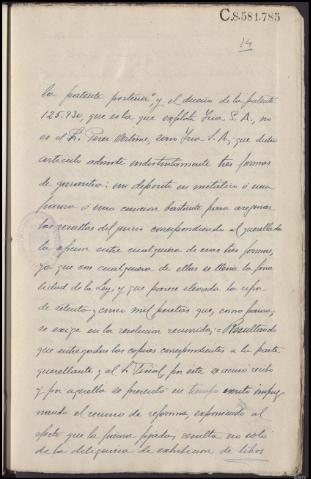 C.8.581.785
14
la patente posterior" y el dueño de la patente
125.930, que es la que explota S. A., no
es el Sr. Perez sino S. A, que dicho
artículo admite indistintamente tres formas
de garantia: un depósito en metálico ó una
fianza ó una caucion bastante para asegurar
las resultas del juicio correspondiendo al querellado
la opcion entre cualquiera de esas tres formas,
ya que con cualquiera de ellas se llena la fina
lidad de la Ley, y que parece elevada la cifra
de setenta y cinco mil pesetas que, como fianza,
se exige en la resolucion recurrida;= Resultando
que entregadas las copias correspondientes a la parte
querellante, y al Sr. Fiscal, por este se acusó recibo
y por aquella se presentó en tiempo escrito impug-
nando el recurso de reforma, exponiendo al
efecto que la fianza fijada, resulta no solo
de la diligencia de exhibicion de libros